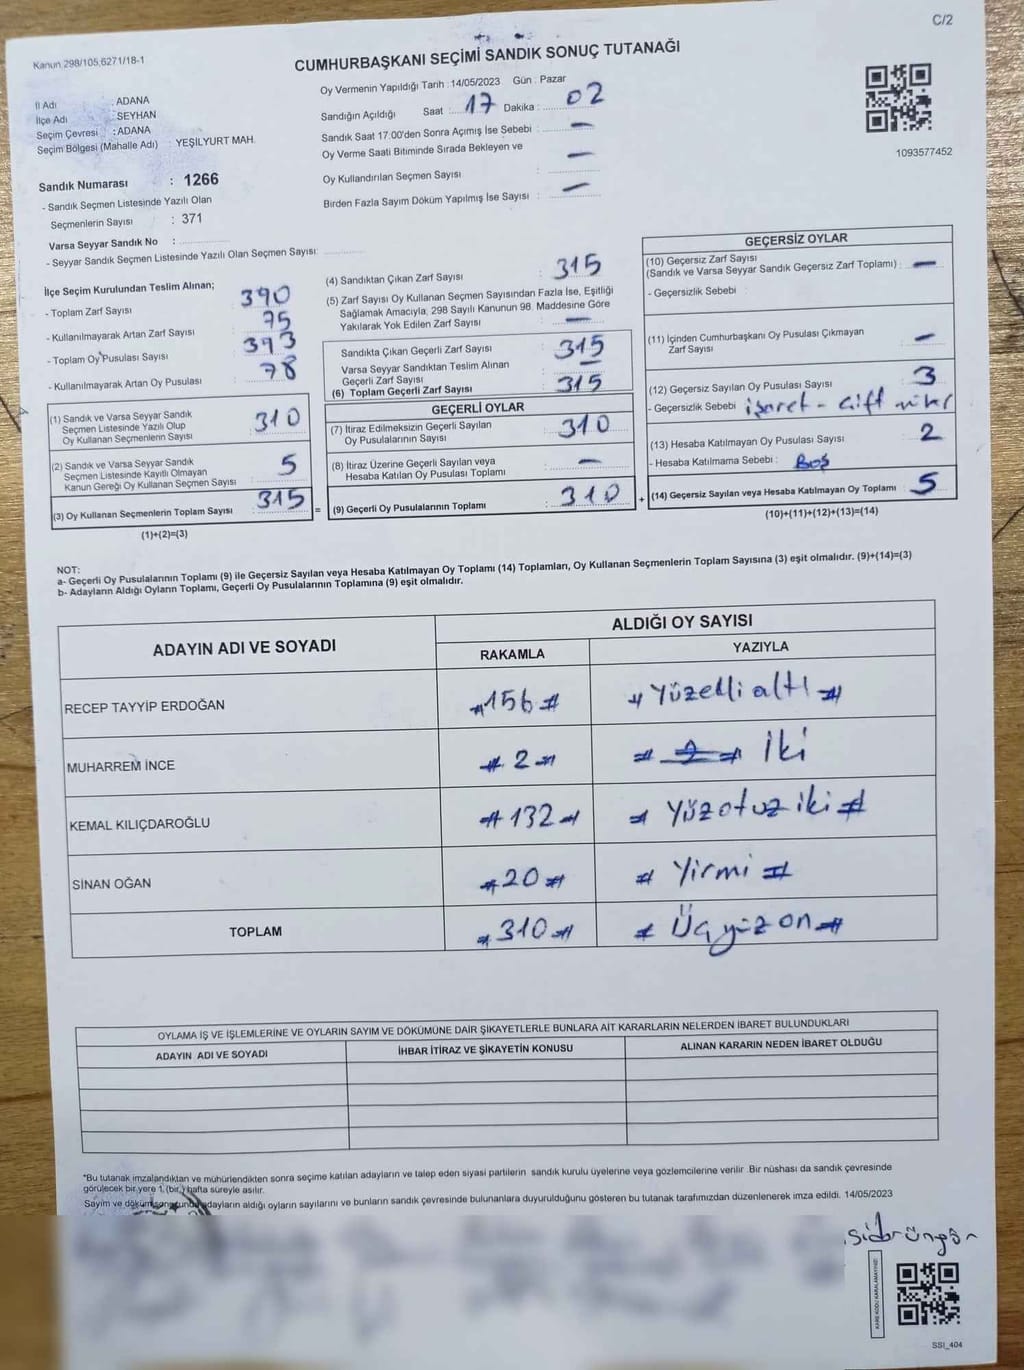 C/2
Kanun 298/105,6271/18-1
CUMHURBAŞKANI SEÇİMİ SANDIK SONUÇ TUTANAĞI
Oy Vermenin Yapıldığı Tarih : 14/05/2023 Gün : Pazar
İl Adı : ADANA
İlçe Adı : SEYHAN
Seçim Çevresi : ADANA
Seçim Bölgesi (Mahalle Adı) : YEŞİLYURT MAH.
Sandığın Açıldığı Saat : 17 Dakika : 02
Sandık Saat 17.00'den Sonra Açımış İse Sebebi : —
Oy Verme Saati Bitiminde Sırada Bekleyen ve
Oy Kullandırılan Seçmen Sayısı : —
Birden Fazla Sayım Döküm Yapılmış İse Sayısı : —
1093577452
Sandık Numarası : 1266
- Sandık Seçmen Listesinde Yazılı Olan
Seçmenlerin Sayısı : 371
Varsa Seyyar Sandık No :
- Seyyar Sandık Seçmen Listesinde Yazılı Olan Seçmen Sayısı:
İlçe Seçim Kurulundan Teslim Alınan;
- Toplam Zarf Sayısı : 390
- Kullanılmayarak Artan Zarf Sayısı : 75
- Toplam Oy Pusulası Sayısı : 393
- Kullanılmayarak Artan Oy Pusulası : 78
(1) Sandık ve Varsa Seyyar Sandık
Seçmen Listesinde Yazılı Olup
Oy Kullanan Seçmenlerin Sayısı : 310
(2) Sandık ve Varsa Seyyar Sandık
Seçmen Listesinde Kayıtlı Olmayan
Kanun Gereği Oy Kullanan Seçmen Sayısı : 5
(3) Oy Kullanan Seçmenlerin Toplam Sayısı : 315
(1)+(2)=(3)
(4) Sandıktan Çıkan Zarf Sayısı : 315
(5) Zarf Sayısı Oy Kullanan Seçmen Sayısından Fazla İse, Eşitliği
Sağlamak Amacıyla, 298 Sayılı Kanunun 98. Maddesine Göre
Yakılarak Yok Edilen Zarf Sayısı : —
Sandıkta Çıkan Geçerli Zarf Sayısı : 315
Varsa Seyyar Sandıktan Teslim Alınan
Geçerli Zarf Sayısı : —
(6) Toplam Geçerli Zarf Sayısı : 315
GEÇERLİ OYLAR
(7) İtiraz Edilmeksizin Geçerli Sayılan
Oy Pusulalarının Sayısı : 310
(8) İtiraz Üzerine Geçerli Sayılan veya
Hesaba Katılan Oy Pusulası Toplamı : —
= (9) Geçerli Oy Pusulalarının Toplamı : 310
GEÇERSİZ OYLAR
(10) Geçersiz Zarf Sayısı
(Sandık ve Varsa Seyyar Sandık Geçersiz Zarf Toplamı) : —
- Geçersizlik Sebebi :
(11) İçinden Cumhurbaşkanı Oy Pusulası Çıkmayan
Zarf Sayısı : —
(12) Geçersiz Sayılan Oy Pusulası Sayısı : 3
- Geçersizlik Sebebi : işaret - Çift
(13) Hesaba Katılmayan Oy Pusulası Sayısı : 2
- Hesaba Katılmama Sebebi : Boş
+ (14) Geçersiz Sayılan veya Hesaba Katılmayan Oy Toplamı : 5
(10)+(11)+(12)+(13)=(14)
NOT:
a- Geçerli Oy Pusulalarının Toplamı (9) ile Geçersiz Sayılan veya Hesaba Katılmayan Oy Toplamı (14) Toplamları, Oy Kullanan Seçmenlerin Toplam Sayısına (3) eşit olmalıdır. (9)+(14)=(3)
b- Adayların Aldığı Oyların Toplamı, Geçerli Oy Pusulalarının Toplamına (9) eşit olmalıdır.
ADAYIN ADI VE SOYADI
ALDIĞI OY SAYISI
RAKAMLA YAZIYLA
RECEP TAYYİP ERDOĞAN #156# # Yüzelli altı #
MUHARREM İNCE # 2 # # # İki
KEMAL KILIÇDAROĞLU #132# # Yüzotuz iki #
SİNAN OĞAN #20# # Yirmi #
TOPLAM #310# # Üçyüz on #
OYLAMA İŞ VE İŞLEMLERİNE VE OYLARIN SAYIM VE DÖKÜMÜNE DAİR ŞİKAYETLERLE BUNLARA AİT KARARLARIN NELERDEN İBARET BULUNDUKLARI
ADAYIN ADI VE SOYADI İHBAR İTİRAZ VE ŞİKAYETİN KONUSU ALINAN KARARIN NEDEN İBARET OLDUĞU
*Bu tutanak imzalandıktan ve mühürlendikten sonra seçime katılan adayların ve talep eden siyasi partilerin sandık kurulu üyelerine veya gözlemcilerine verilir. Bir nüshası da sandık çevresinde
görülecek bir yere 1 (bir) hafta süreyle asılır.
Sayım ve döküm sonucunda adayların aldığı oyların sayılarını ve bunların sandık çevresinde bulunanlara duyurulduğunu gösteren bu tutanak tarafımızdan düzenlenerek imza edildi. 14/05/2023
KARE KODU KARALAMAYINIZ!
SSI_404